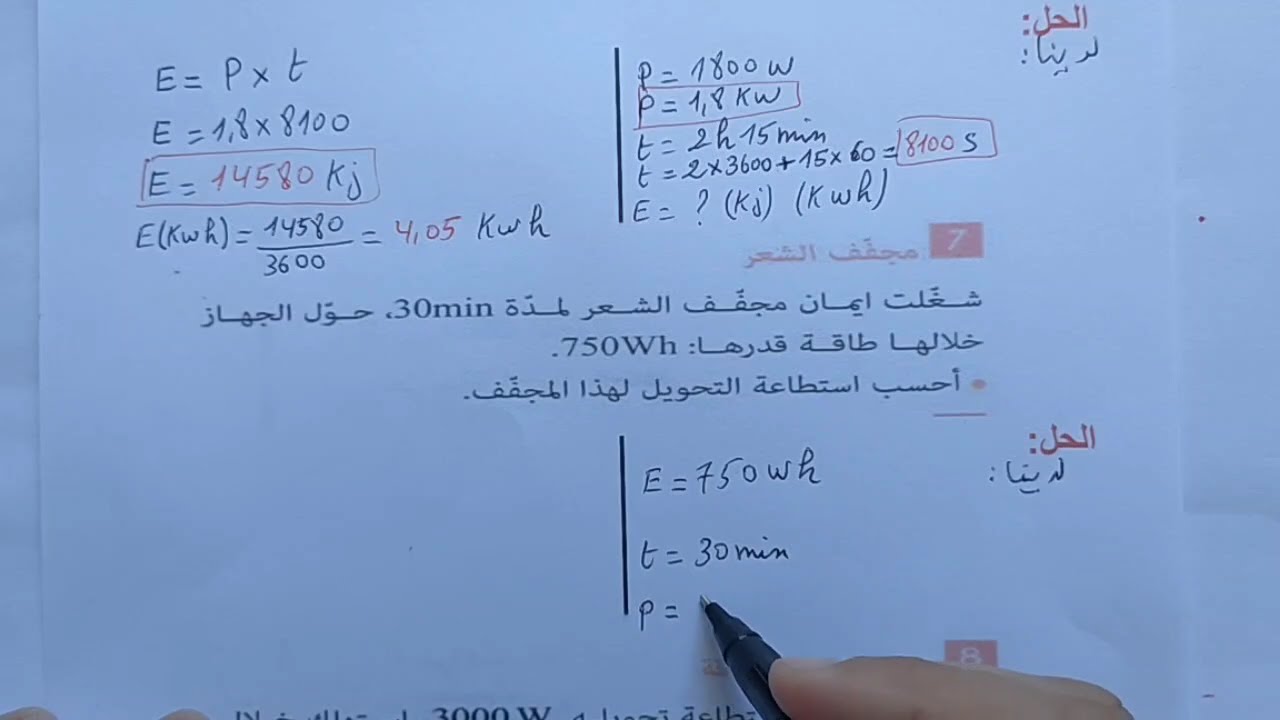 الحل:
لدينا:
P = 1800 W
P = 1,8 KW
t = 2h 15min
t = 2×3600 + 15×60 = 8100 S
E = ? (Kj) (Kwh)
E = P × t
E = 1,8 × 8100
E = 14580 Kj
E(Kwh) = 14580 / 3600 = 4,05 Kwh
7 مجفّف الشعر
شغّلت ايمان مجفّف الشعر لمدّة 30min، حوّل الجهاز
خلالها طاقة قدرها: 750Wh.
• أحسب استطاعة التحويل لهذا المجفّف.
الحل:
لدينا:
E = 750 wh
t = 30 min
P =
8
3000 W